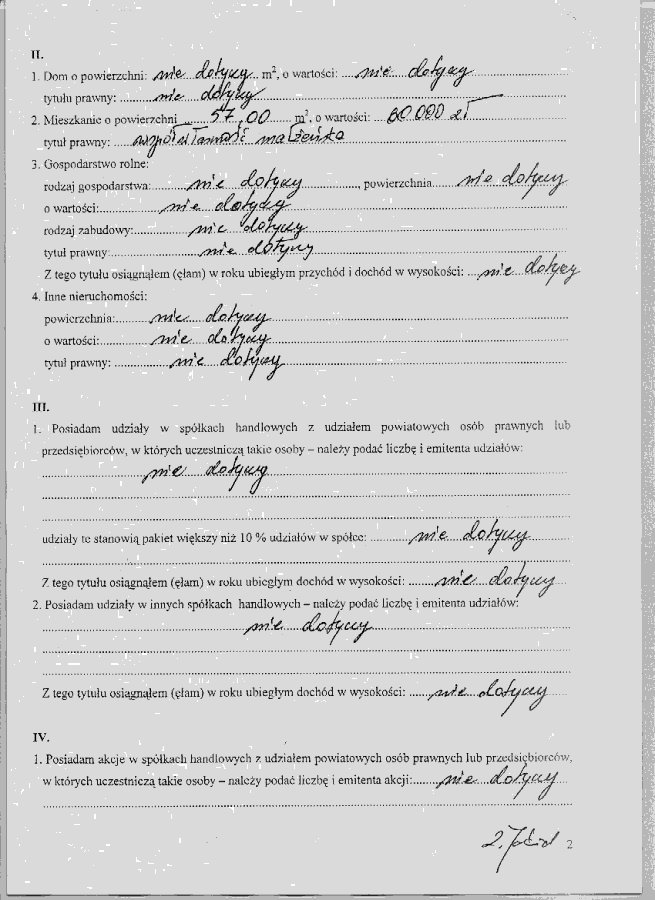 II.
1. Dom o powierzchni: nie dotyczy m², o wartości: nie dotyczy
tytułu prawny: nie dotyczy
2. Mieszkanie o powierzchni 57,00 m², o wartości: 60 000 zł
tytuł prawny: współwłasność małżeńska
3. Gospodarstwo rolne:
rodzaj gospodarstwa: nie dotyczy, powierzchnia nie dotyczy
o wartości: nie dotyczy
rodzaj zabudowy: nie dotyczy
tytuł prawny: nie dotyczy
Z tego tytułu osiągnąłem (ęłam) w roku ubiegłym przychód i dochód w wysokości: nie dotyczy
4. Inne nieruchomości:
powierzchnia: nie dotyczy
o wartości: nie dotyczy
tytuł prawny: nie dotyczy
III.
1. Posiadam udziały w spółkach handlowych z udziałem powiatowych osób prawnych lub
przedsiębiorców, w których uczestniczą takie osoby – należy podać liczbę i emitenta udziałów:
nie dotyczy
udziały te stanowią pakiet większy niż 10 % udziałów w spółce: nie dotyczy
Z tego tytułu osiągnąłem (ęłam) w roku ubiegłym dochód w wysokości: nie dotyczy
2. Posiadam udziały w innych spółkach handlowych – należy podać liczbę i emitenta udziałów:
nie dotyczy
Z tego tytułu osiągnąłem (ęłam) w roku ubiegłym dochód w wysokości: nie dotyczy
IV.
1. Posiadam akcje w spółkach handlowych z udziałem powiatowych osób prawnych lub przedsiębiorców,
w których uczestniczą takie osoby – należy podać liczbę i emitenta akcji: nie dotyczy
2